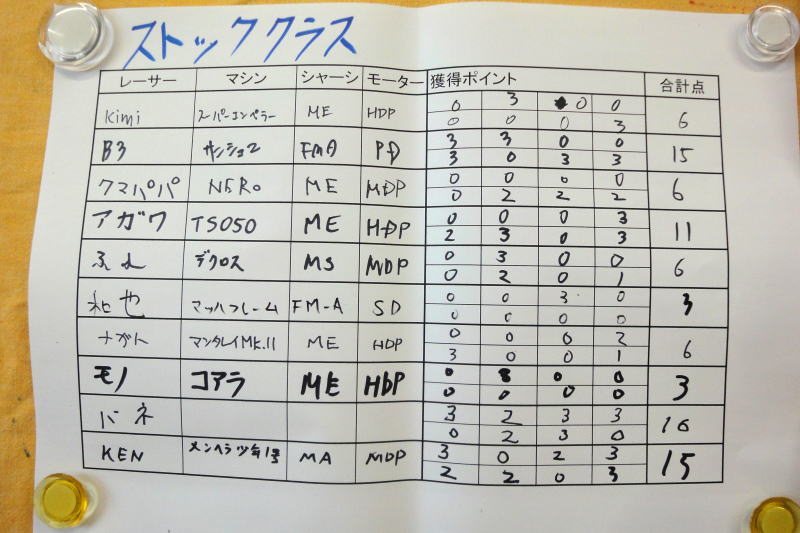 ストッククラス
レーサー マシン シャーシ モーター 獲得ポイント 合計点
kimi スーパーエンペラー ME HDP 0 3 0 0 6
0 0 0 3
B3 FMA PD 3 3 0 0 15
3 0 3 3
クマパパ NERO ME MDP 0 0 0 0 6
0 2 2 2
アガワ TS050 ME HDP 0 0 0 3 11
2 3 0 3
デクロス MS MDP 0 3 0 0 6
0 2 0 1
和也 マッハフレーム FM-A SD 0 0 3 0 3
0 0 0 0
ナガト マンタレイMk.II ME HDP 0 0 0 2 6
3 0 0 1
モノ コアラ ME HDP 0 0 0 3
0 0 0 0
バネ 3 2 3 3 16
0 2 3 0
KEN MA MDP 3 0 2 3 15
2 2 0 3